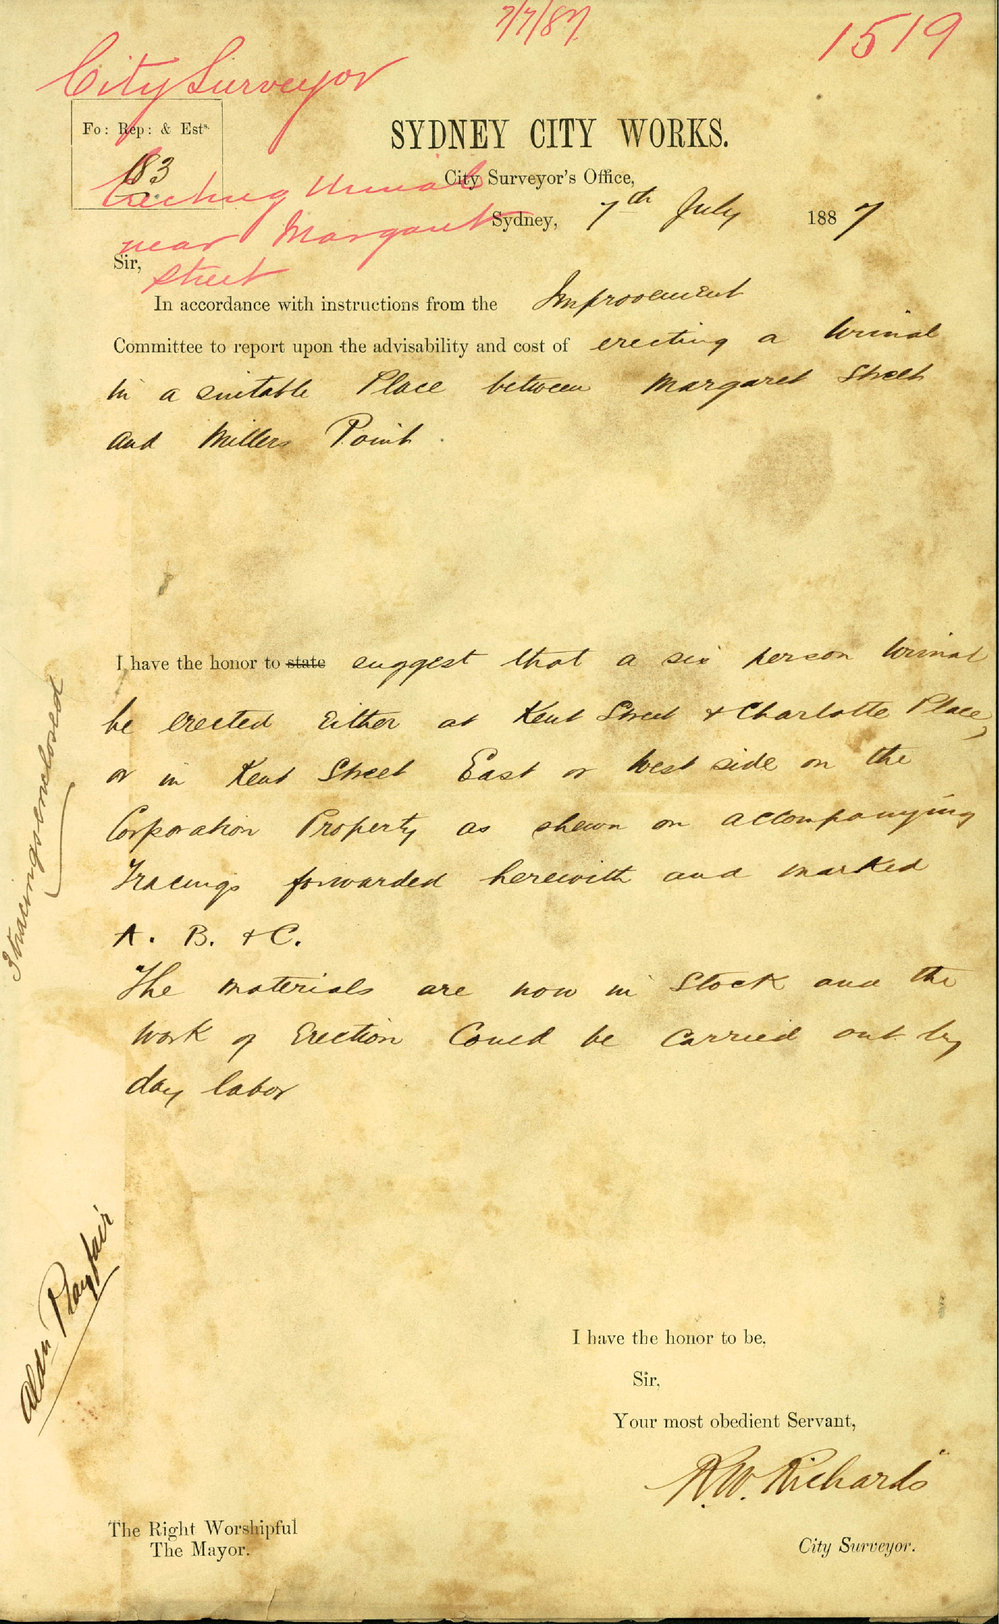 7/7/87
1519
City Surveyor
Fo: Rep: & Ests.
183
SYDNEY CITY WORKS.
City Surveyor's Office,
Erecting Urinal
near Margaret
Street
Sydney, 7th July 1887
Sir,
In accordance with instructions from the Improvement
Committee to report upon the advisability and cost of erecting a Urinal
in a suitable Place between Margaret Street
and Millers Point.
I have the honor to state suggest that a six person Urinal
be erected either at Kent Street & Charlotte Place,
or in Kent Street East or West side on the
Corporation Property as shewn on accompanying
Tracings forwarded herewith and marked
A. B. & C.
The materials are now in Stock and the
Work of Erection Could be Carried out by
day labor
3 tracings enclosed
Aldn Playfair
I have the honor to be,
Sir,
Your most obedient Servant,
R.W. Richards
City Surveyor.
The Right Worshipful
The Mayor.